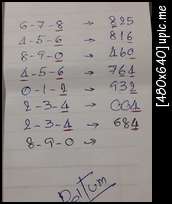 6-7-8 → 825
4-5-6 → 816
8-9-0 → 460
4-5-6 → 764
0-1-2 → 932
2-3-4 → 004
2-3-4 → 684
8-9-0 →
[480x640] upic.me